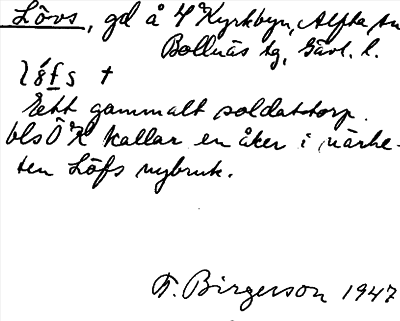 Lövs, gd å 4 Kyrkbyn, Alfta sn
Bollnäs tg, Gävl. l.
Ett gammalt soldattorp.
kallar en åker i närhe-
ten Löfs nybruk.
F. Birgerson 1947